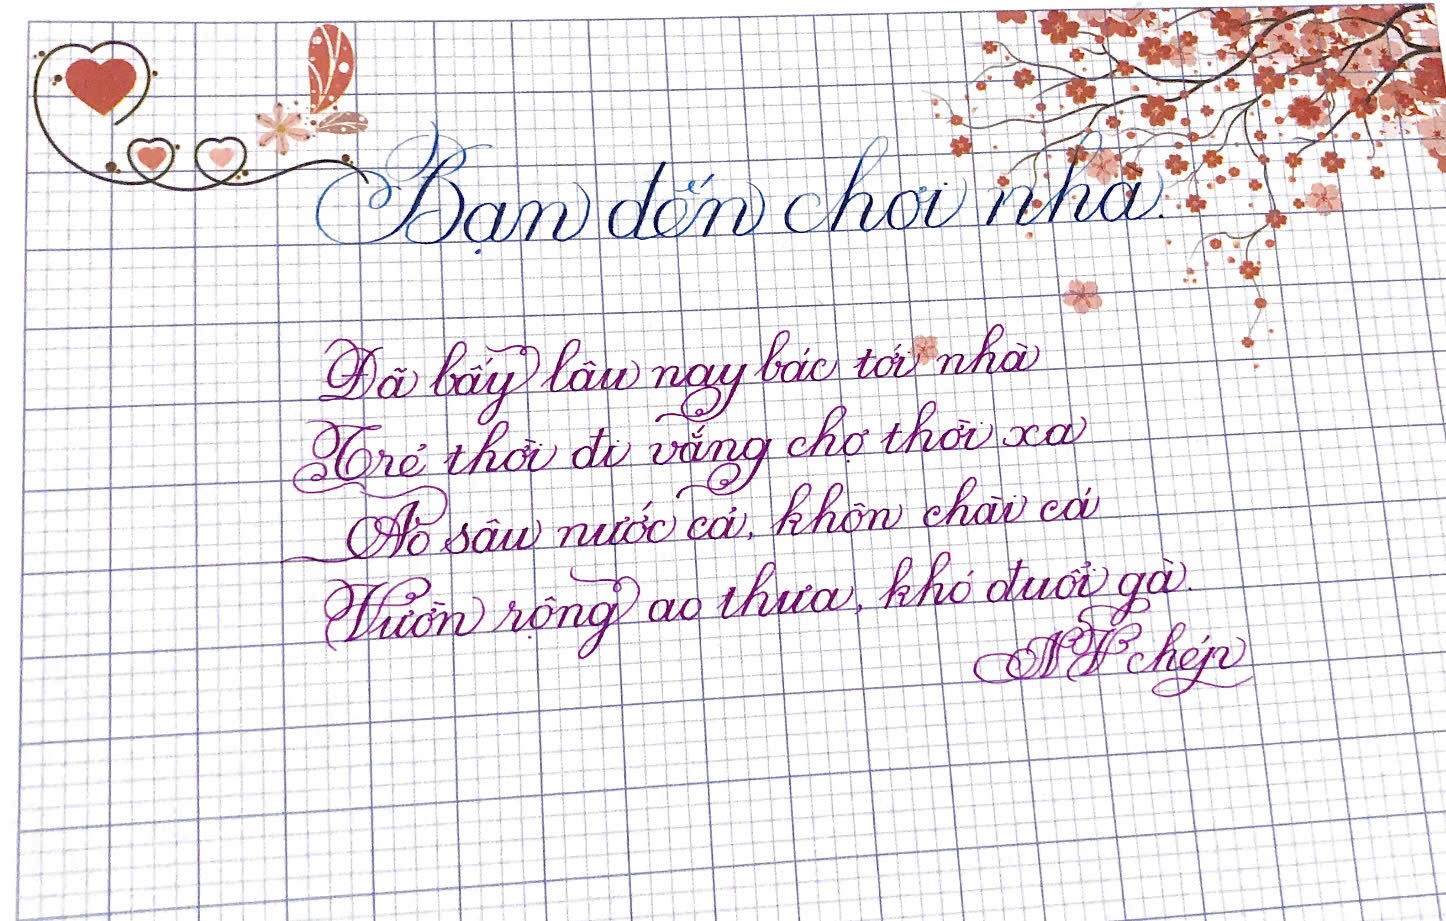 Bạn đến chơi nhà.
Đã bấy lâu nay bác tới nhà
Trẻ thời đi vắng chợ thời xa
Ao sâu nước cả, khôn chài cá
Vườn rộng ao thưa, khó đuổi gà.
NH chép